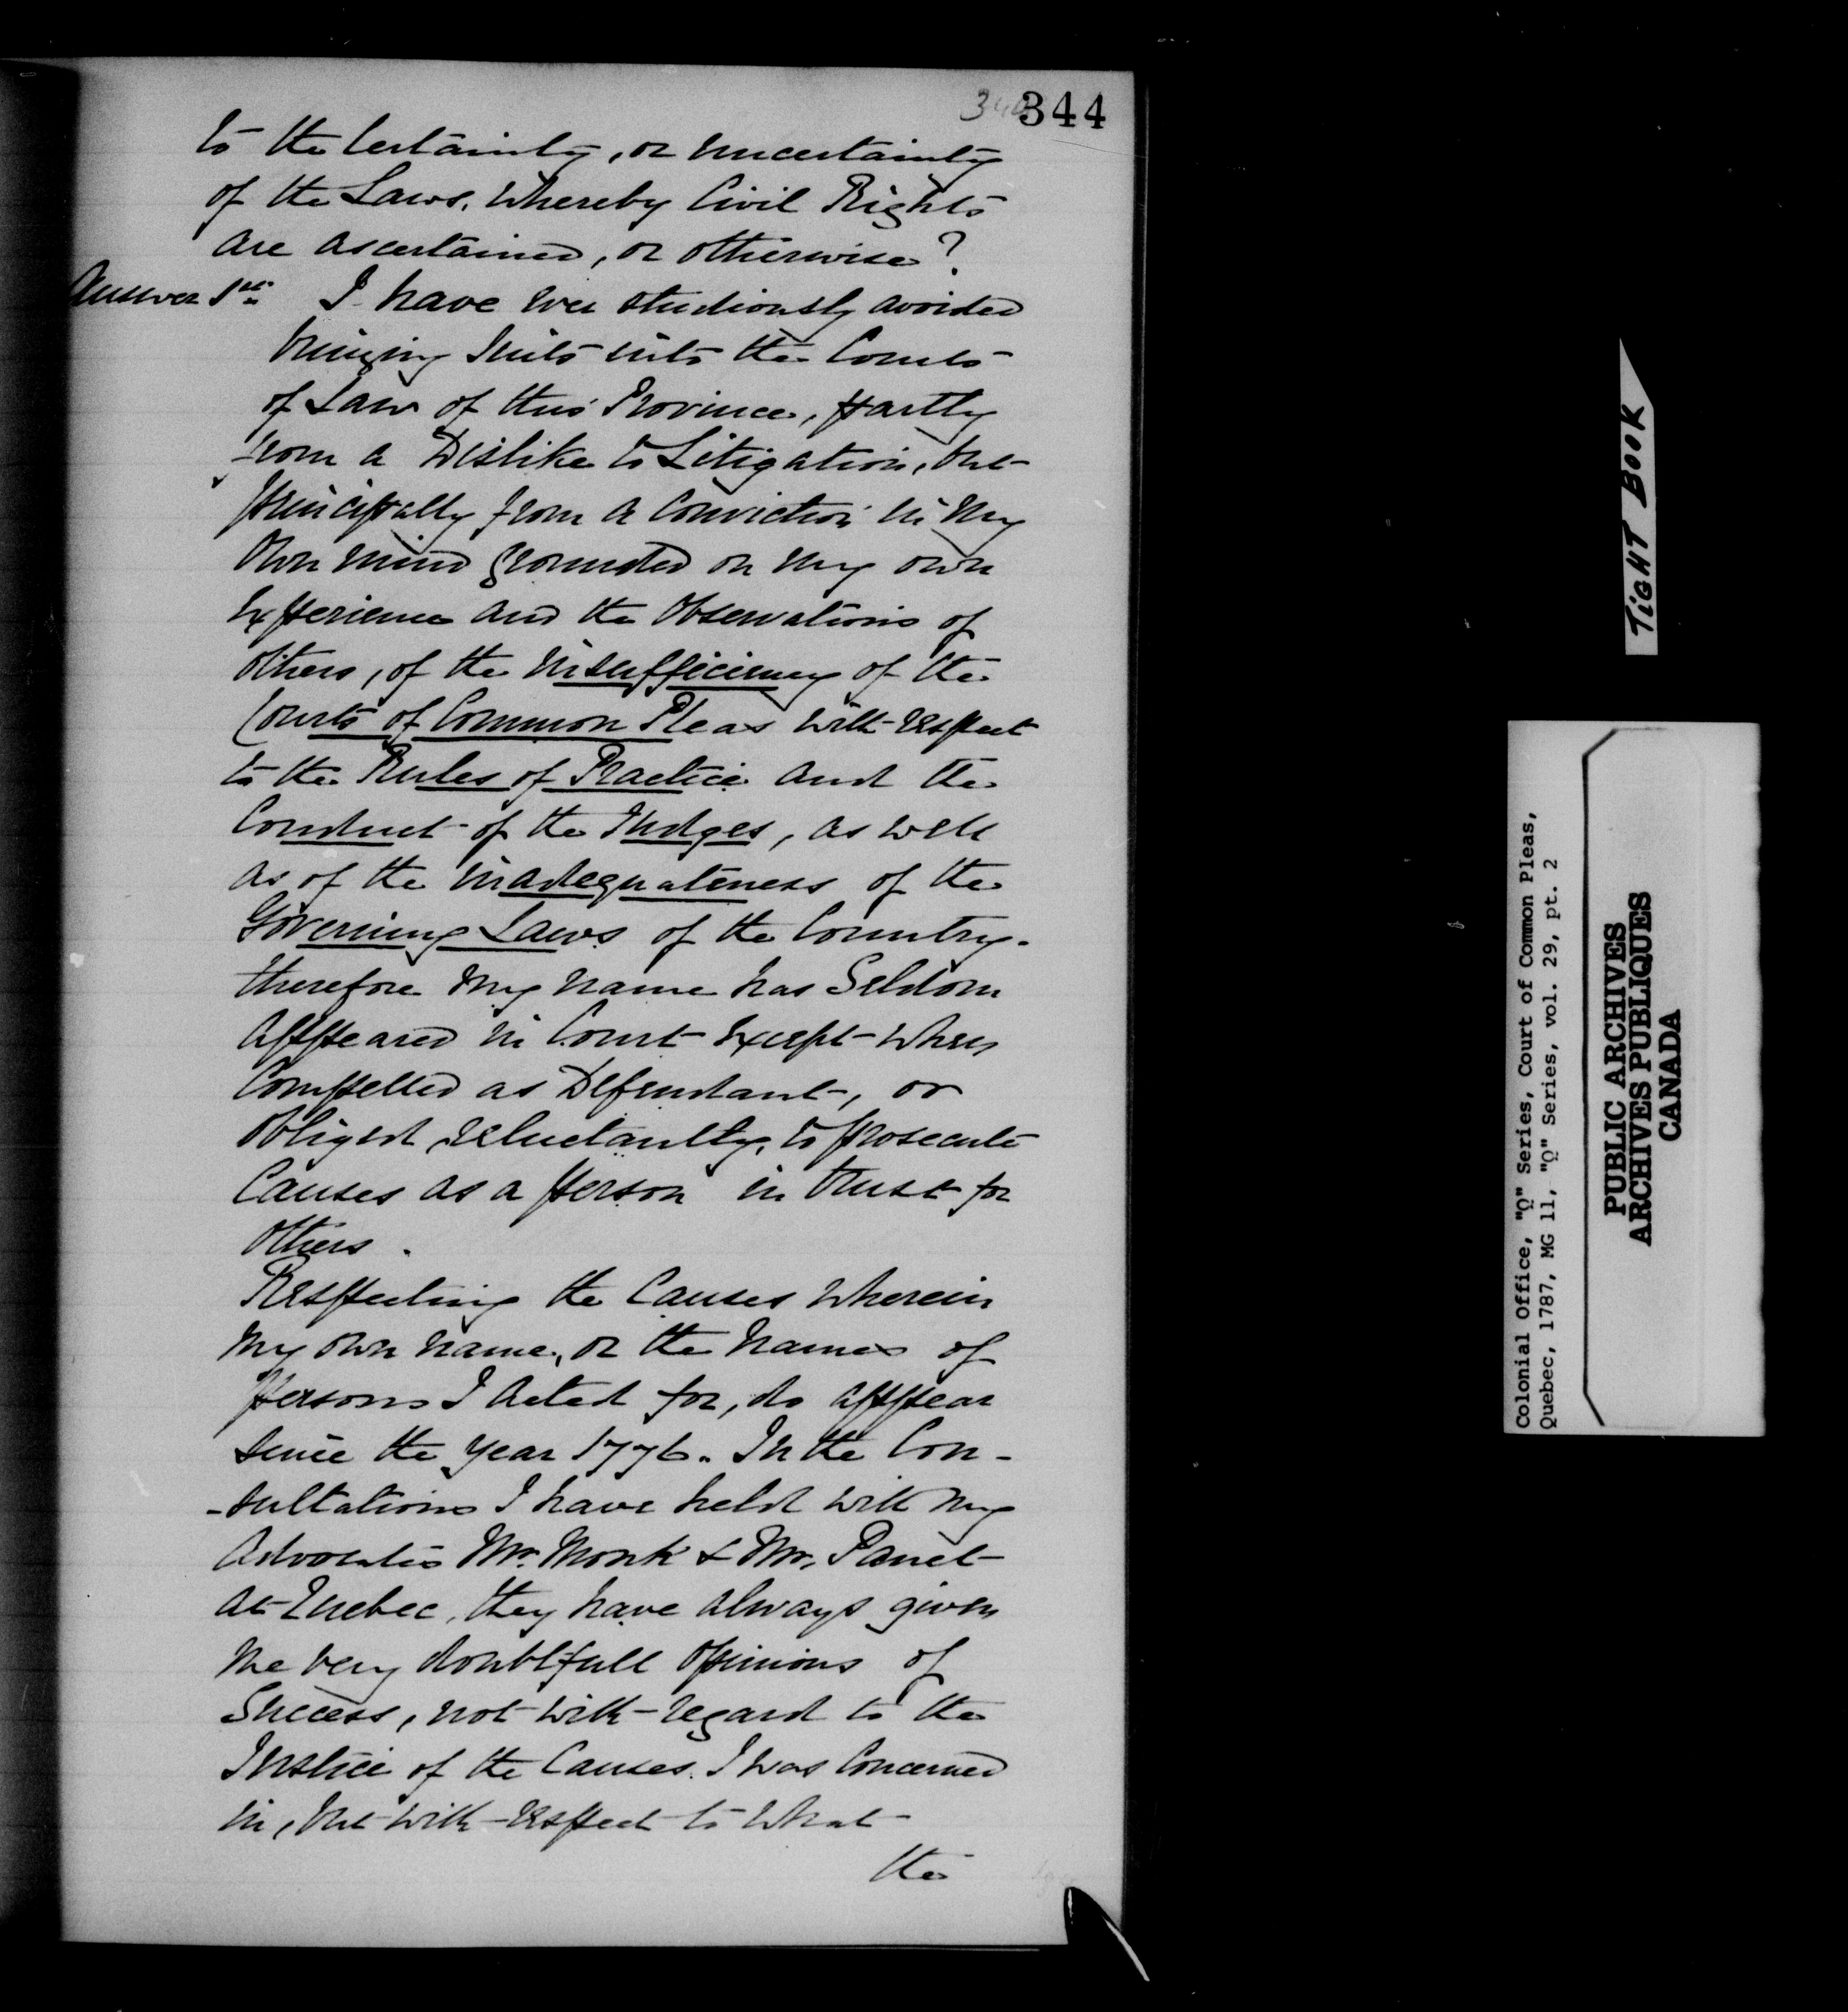 344
to the Certainty, or uncertainty
of the Laws, whereby Civil Rights
are ascertained, or otherwise?
Answer 1st I have ever studiously avoided
bringing Suits into the Courts
of Law of this Province, partly
from a Dislike to Litigation, but
principally from a Conviction in my
own mind grounded on my own
Experience and the Observations of
others, of the insufficiency of the
Courts of Common Pleas with respect
to the Rules of Practice and the
Conduct of the Judges, as well
as of the inadequateness of the
Governing Laws of the Country.
therefore my name has Seldom
appeared in Court except when
Compelled as Defendant, or
Obliged reluctantly, to prosecute
Causes as a person in trust for
others.
Respecting the Causes wherein
my own name, or the names of
persons I acted for, do appear
since the year 1776. In the Con-
-sultations I have held with my
Advocates Mr. Monk & Mr. Panet
at Quebec, they have always given
me very doubtfull opinions of
Success, not with regard to the
Justice of the Causes. I was Concerned
in, but with respect to what
the
TIGHT BOOK
Colonial Office, "Q" Series, Court of Common Pleas,
Quebec, 1787, MG 11, "Q" Series, vol. 29, pt. 2
PUBLIC ARCHIVES
ARCHIVES PUBLIQUES
CANADA